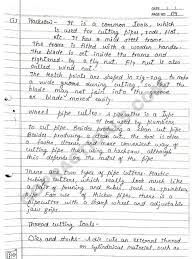 DATE
PAGE NO. 09
Q3 Hacksaw - It is a common tools, which
is used for cutting pipe, rods, flat,
etc. It has a mild steel frame.
The frame is fitted with a wooden handle.
The blade is set inside the frame and
tightened by a fly nut. Fly nut is also
called wind nut.
The teeth points are shaped in zig-zag to make
a wide groove during cutting, so that the
blade may not joint into the groove
on blade moved easily.
Wheel pipe cutter - a pipecutter is a type
of tool used by plumbers
to cut pipe. Besides producing a clean cut
Besides producing a clean cut. The tool is often
a faster, cleaner, and more convenient way of
cutting pipe than using a hacksaw, although
this depends on the metal of the pipe
There are two types of pipe cutters. Plastic
tubing cutters, which really look much like
a pair of pruning
pipe cutters with a sharp wheel and adjustable
jaw grips.
Thread cutting Tools -
Dies and stocks : A die cuts an external thread
on cylindrical material, such as